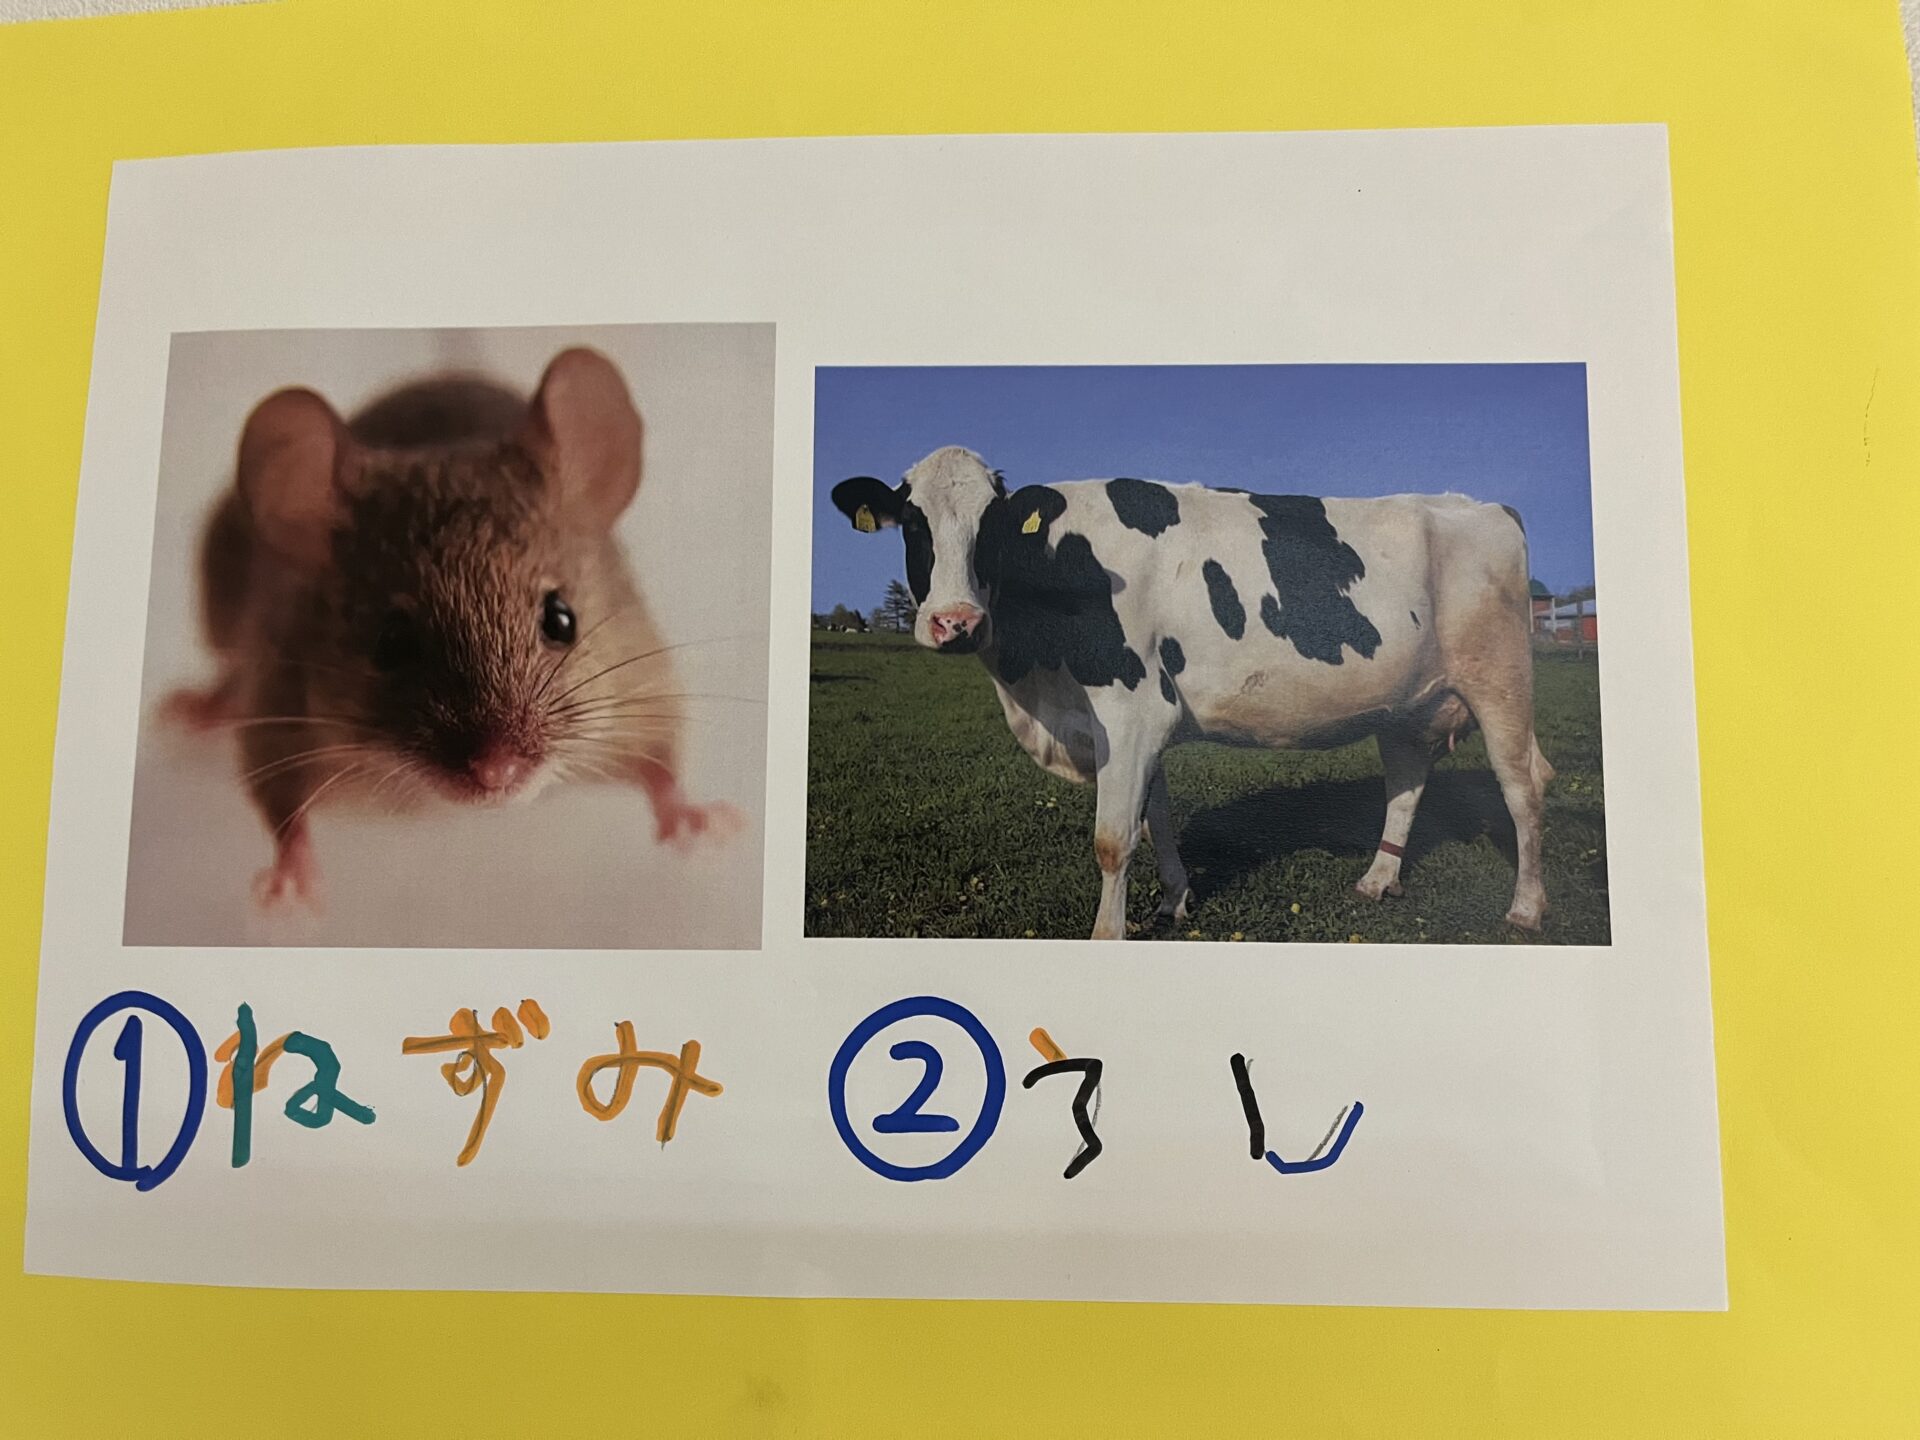 ①ねずみ ②うし